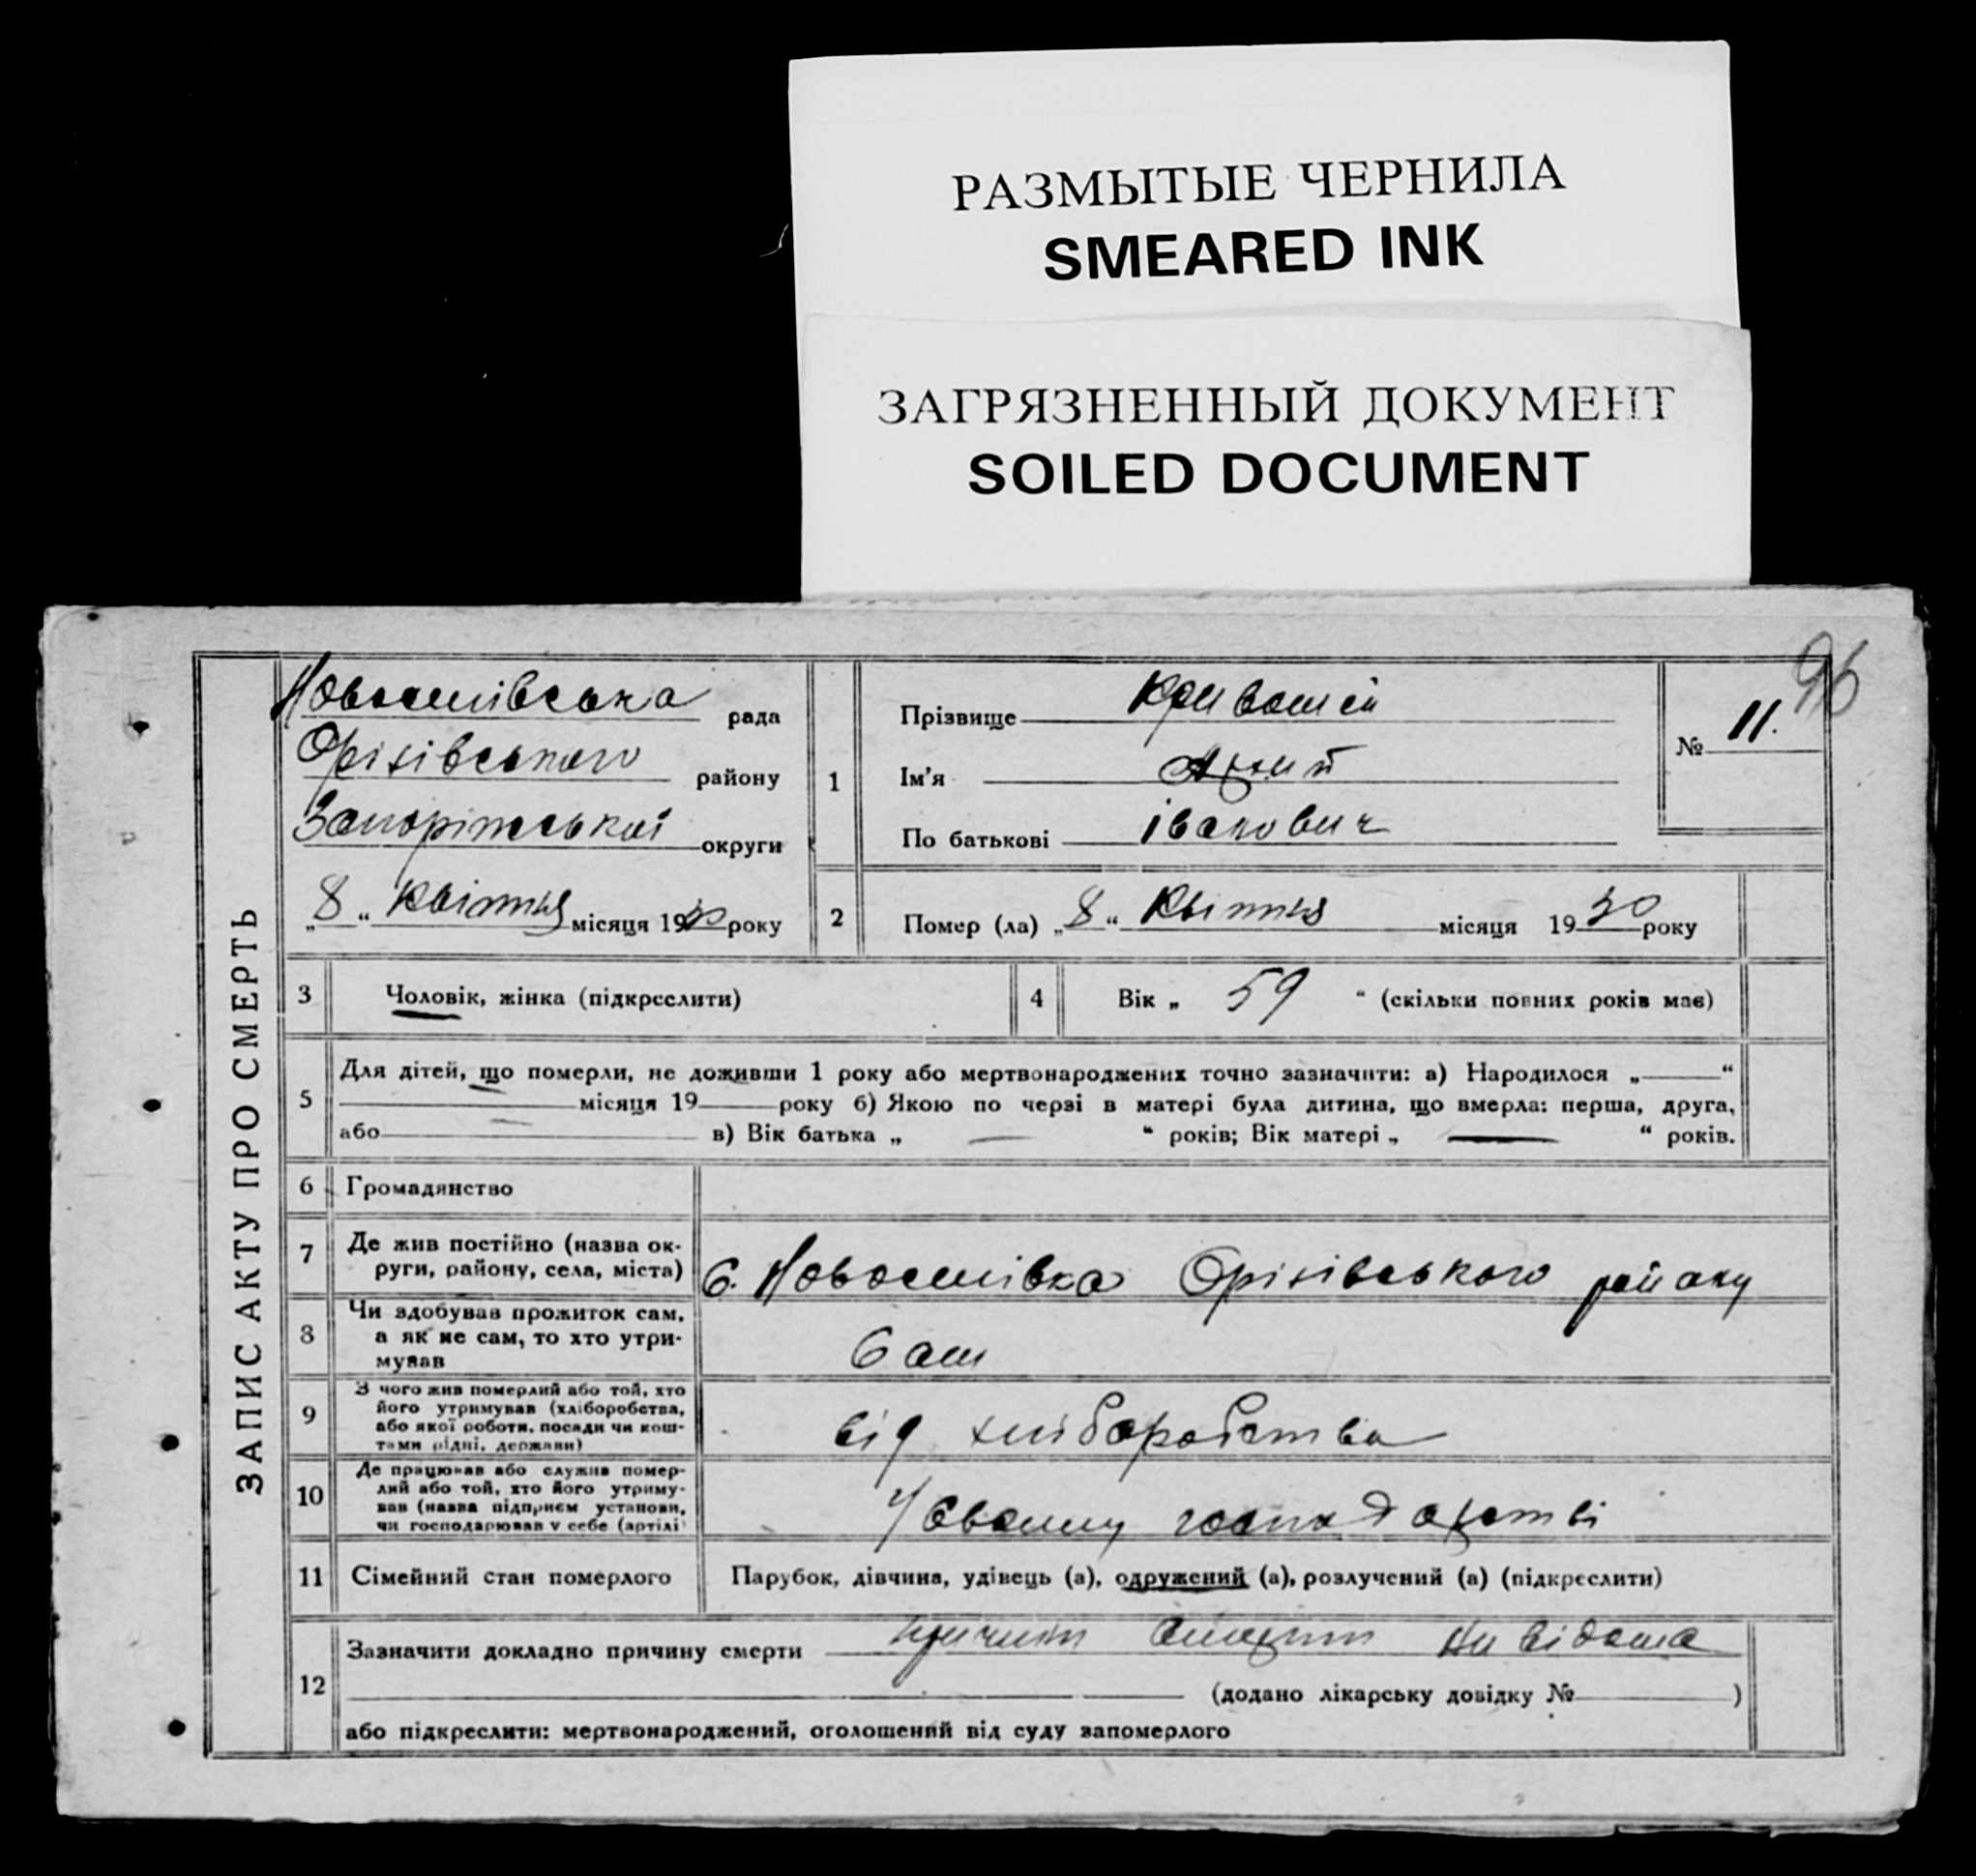 РАЗМЫТЫЕ ЧЕРНИЛА
SMEARED INK
ЗАГРЯЗНЕННЫЙ ДОКУМЕНТ
SOILED DOCUMENT
96
ЗАПИС АКТУ ПРО СМЕРТЬ
рада
Оріхівського району
Запоріжської округи
„8“ Квітня місяця 1930 року
1
Прізвище Кривошей
Ім'я
По батькові Іванович
№ 11.
2 Помер (ла) „8“ Квітня місяця 1930 року
3 Чоловік, жінка (підкреслити)
4 Вік „ 59 “ (скільки повних років має)
5 Для дітей, що померли, не доживши 1 року або мертвонароджених точно зазначити: а) Народилося „ “
місяця 19 року б) Якою по черзі в матері була дитина, що вмерла: перша, друга,
або в) Вік батька „ — “ років; Вік матері „ — “ років.
6 Громадянство
7 Де жив постійно (назва ок-
руги, району, села, міста)
С. Оріхівського району
8 Чи здобував прожиток сам,
а як не сам, то хто утри-
мував
Сам
9 З чого жив померлий або той, хто
його утримував (хліборобства,
або якої роботи, посади чи кош-
тами рідні, держави)
від хліборобства
10 Де працював або служив помер-
лий або той, хто його утриму-
вав (назва підприєм установи,
чи господарював у себе (артілі
У свому господарстві
11 Сімейний стан померлого
Парубок, дівчина, удівець (а), одружений (а), розлучений (а) (підкреслити)
12 Зазначити докладно причину смерти причина смерти не відома
(додано лікарську довідку № )
або підкреслити: мертвонароджений, оголошений від суду запомерлого